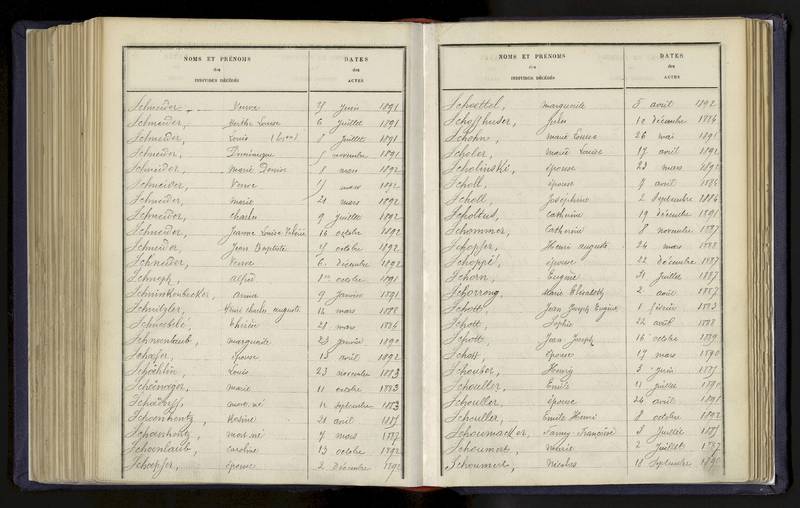 NOMS ET PRÉNOMS
des
INDIVIDUS DÉCÉDÉS
DATES
des
ACTES
Schneider, Veuve Juin 1891
Schneider, Berthe Louise 6 Juillet 1891
Schneider, Louis 8 Juillet 1891
Schneider, Dominique novembre 1891
Schneider, Marie 8 mars 1892
Schneider, Veuve mars 1892
Schneider, Marie 21 mars 1892
Schneider, Charles 9 Juillet 1892
Schneider, Jeanne Louise 14 octobre 1892
Schneider, Jean Baptiste octobre 1892
Schneider, Veuve 6 décembre 1892
Alfred 1er octobre 1891
anna 9 Janvier 1891
Schnitzler, charles auguste 14 mars 1888
Schnoebelé, Thérèse 21 mars 1884
Schneenlaub, marguerite 23 Janvier 1890
Schafer, épouse 13 avril 1892
Louis 23 novembre 1883
marie 11 octobre 1883
mort-né 14 septembre 1883
Rosine 21 avril
mort-né 7 mars 1887
Schoenlaub, Caroline 13 octobre 1892
Schoepfer, épouse 2 Décembre
NOMS ET PRÉNOMS
des
INDIVIDUS DÉCÉDÉS
DATES
des
ACTES
Schoettel, Marguerite 5 août 1892
Jules 10 décembre 1886
Schohn, Marie Louise 26 mai 1891
Scholer, Marie Louise 17 avril 1892
Scholinski, épouse 23 mars 1891
Scholl, épouse 9 avril 1886
Scholl, Joséphine 2 Septembre 1886
Scholtus, Catherine 19 décembre 1891
Schommer, Catherine 8 novembre 1887
Schopfer, Henri auguste 24 mars 1888
Schoppel, épouse 22 décembre 1887
Schorn, Eugénie 31 Juillet 1887
Schorrong, Marie Elisabeth 2 août 1887
Schott, Jean Joseph Eugène 1 février 1883
Schott, Sophie 22 avril 1888
Schott, Jean Joseph 16 octobre 1889
Schott, épouse 17 mars 1890
Henry 3 Juin
Schouller, Emile 11 Juillet 1890
Schouller, épouse 24 avril 1891
Schouller, Emile Henri 8 octobre 1892
Schoumacker, Fanny Françoise 3 Juillet
Schoumert, Marie 2 Juillet 1887
Schoumert, Nicolas 18 Septembre 1890